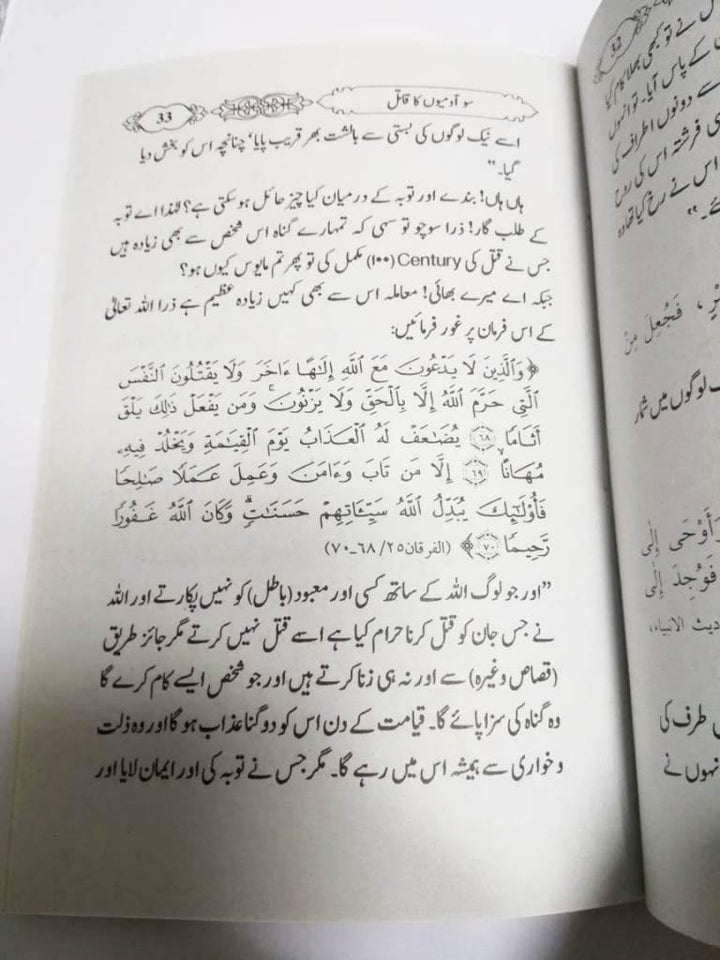 سو آدمیوں کا قاتل
33
اسے نیک لوگوں کی بستی سے بالشت بھر قریب پایا' چنانچہ اس کو بخش دیا
گیا۔"
ہاں ہاں! بندے اور توبہ کے درمیان کیا چیز حائل ہوسکتی ہے؟ لہٰذا اے توبہ
کے طلب گار! ذرا سوچو تو سہی کہ تمہارے گناہ اس شخص سے بھی زیادہ ہیں
جس نے قتل کی Century (۱۰۰) مکمل کی تو پھر تم مایوس کیوں ہو؟
جبکہ اے میرے بھائی! معاملہ اس سے بھی کہیں زیادہ عظیم ہے ذرا اللہ تعالیٰ
کے اس فرمان پر غور فرمائیں:
﴿وَالَّذِينَ لَا يَدْعُونَ مَعَ اللَّهِ إِلَٰهًا ءَاخَرَ وَلَا يَقْتُلُونَ النَّفْسَ
الَّتِي حَرَّمَ اللَّهُ إِلَّا بِالْحَقِّ وَلَا يَزْنُونَ ۚ وَمَن يَفْعَلْ ذَٰلِكَ يَلْقَ
أَثَامًا ۝٦٨ يُضَاعَفْ لَهُ الْعَذَابُ يَوْمَ الْقِيَامَةِ وَيَخْلُدْ فِيهِ
مُهَانًا ۝٦٩ إِلَّا مَن تَابَ وَءَامَنَ وَعَمِلَ عَمَلًا صَالِحًا
فَأُولَٰئِكَ يُبَدِّلُ اللَّهُ سَيِّئَاتِهِمْ حَسَنَاتٍ ۗ وَكَانَ اللَّهُ غَفُورًا
رَّحِيمًا ۝٧٠﴾ (الفرقان ۲۵/ ۶۸_۷۰)
"اور جو لوگ اللہ کے ساتھ کسی اور معبود (باطل) کو نہیں پکارتے اور اللہ
نے جس جان کو قتل کرنا حرام کیا ہے اسے قتل نہیں کرتے مگر جائز طریق
(قصاص وغیرہ) سے اور نہ ہی زنا کرتے ہیں اور جو شخص ایسے کام کرے گا
وہ گناہ کی سزا پائے گا۔ قیامت کے دن اس کو دوگنا عذاب ہوگا اور وہ ذلت
و خواری سے ہمیشہ اس میں رہے گا۔ مگر جس نے توبہ کی اور ایمان لایا اور
32
نے تو کبھی بھلا کام کیا
کے پاس آیا۔ تو انہوں
سے دونوں اطراف کی
فرشتہ اس کی روح
اس نے رخ کیا تھا وہ
فَجُعِلَ مِنْ
لوگوں میں شمار
أَوْحَى إِلَى
فَوُجِدَ إِلَى
الانبیاء،
طرف کی
نہوں نے